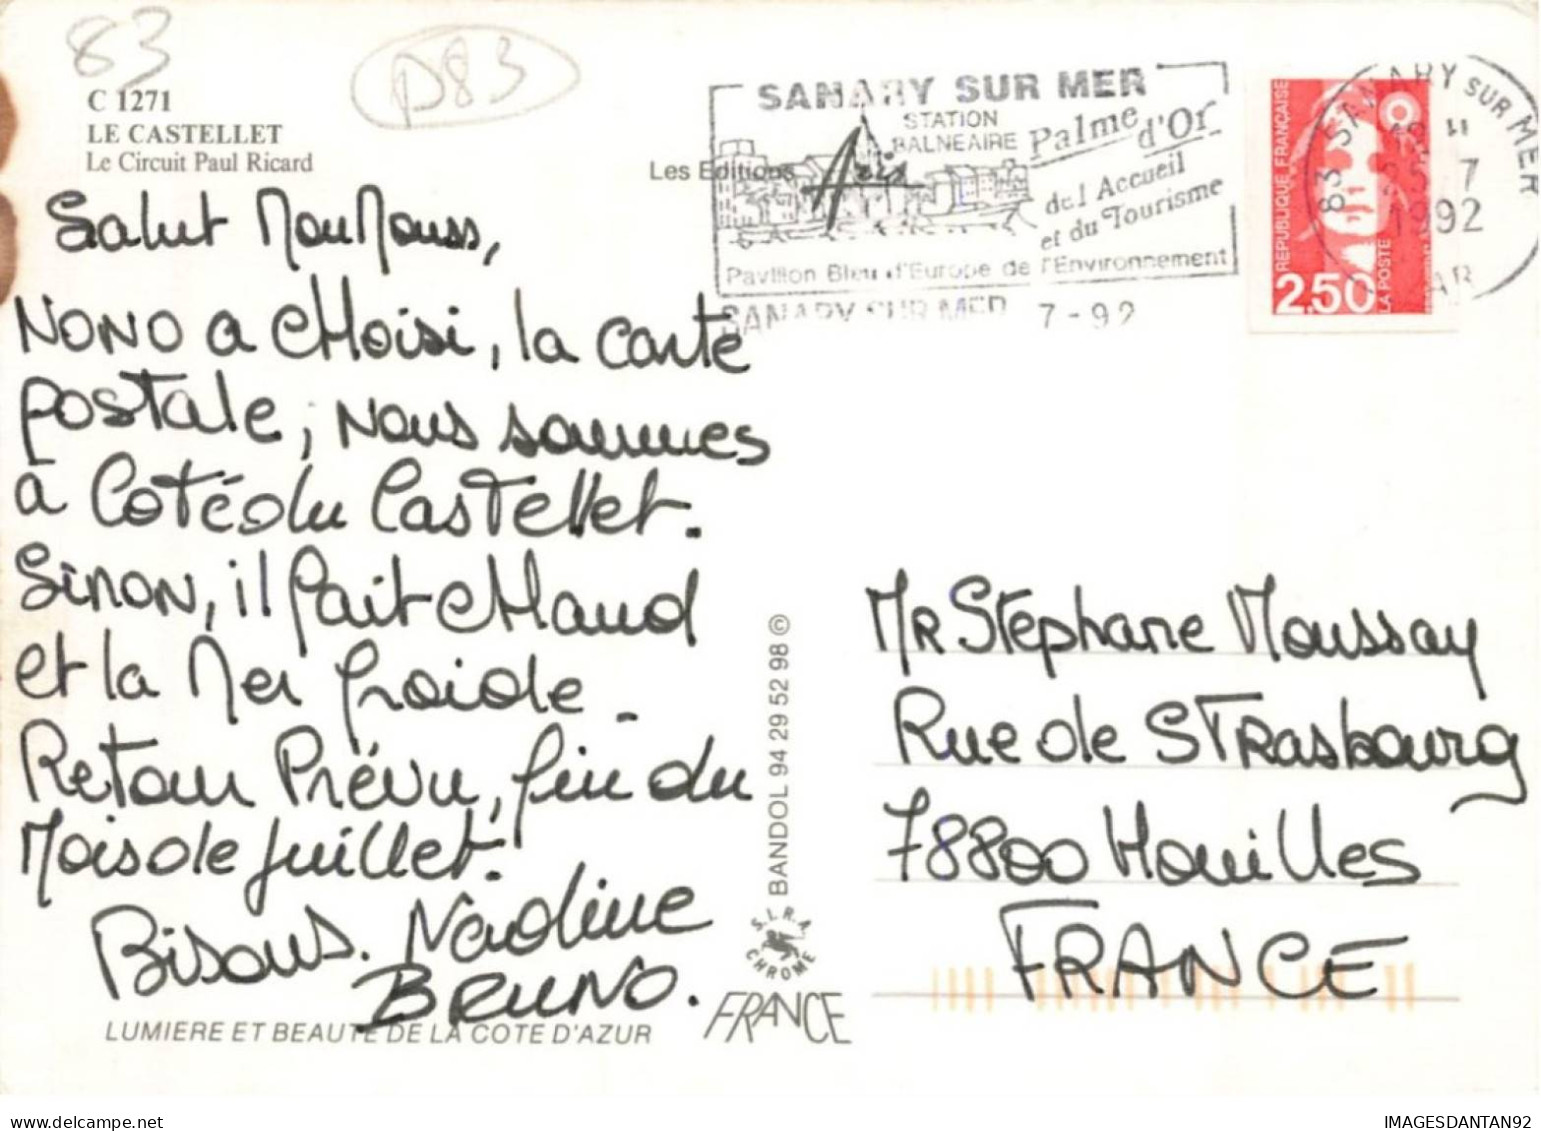 83
D83
C 1271
LE CASTELLET
Le Circuit Paul Ricard
Les Editions Aris
SANARY SUR MER
STATION
BALNEAIRE
Palme
d'Or
de l'Accueil
et du Tourisme
Pavillon Bleu d'Europe de l'Environnement
SANARY SUR MER 7-92
83 SANARY SUR MER
1992
VAR
REPUBLIQUE FRANÇAISE
2,50
LA POSTE
Salut MouMouss,
NONO a cHoisi, la carte
postale, nous sommes
à Coté du Castellet.
Sinon, il fait cHaud
et la Mer froide.
Retour Prévu, fin du
Mois de juillet.
Bisous. Nadine
BRUNO.
MR Stéphane Moussay
Rue de STRasbourg
78800 Houilles
FRANCE
BANDOL 94 29 52 98 ©
S.I.R.A
CHROME
FRANCE
LUMIERE ET BEAUTE DE LA COTE D'AZUR
IMAGESDANTAN92